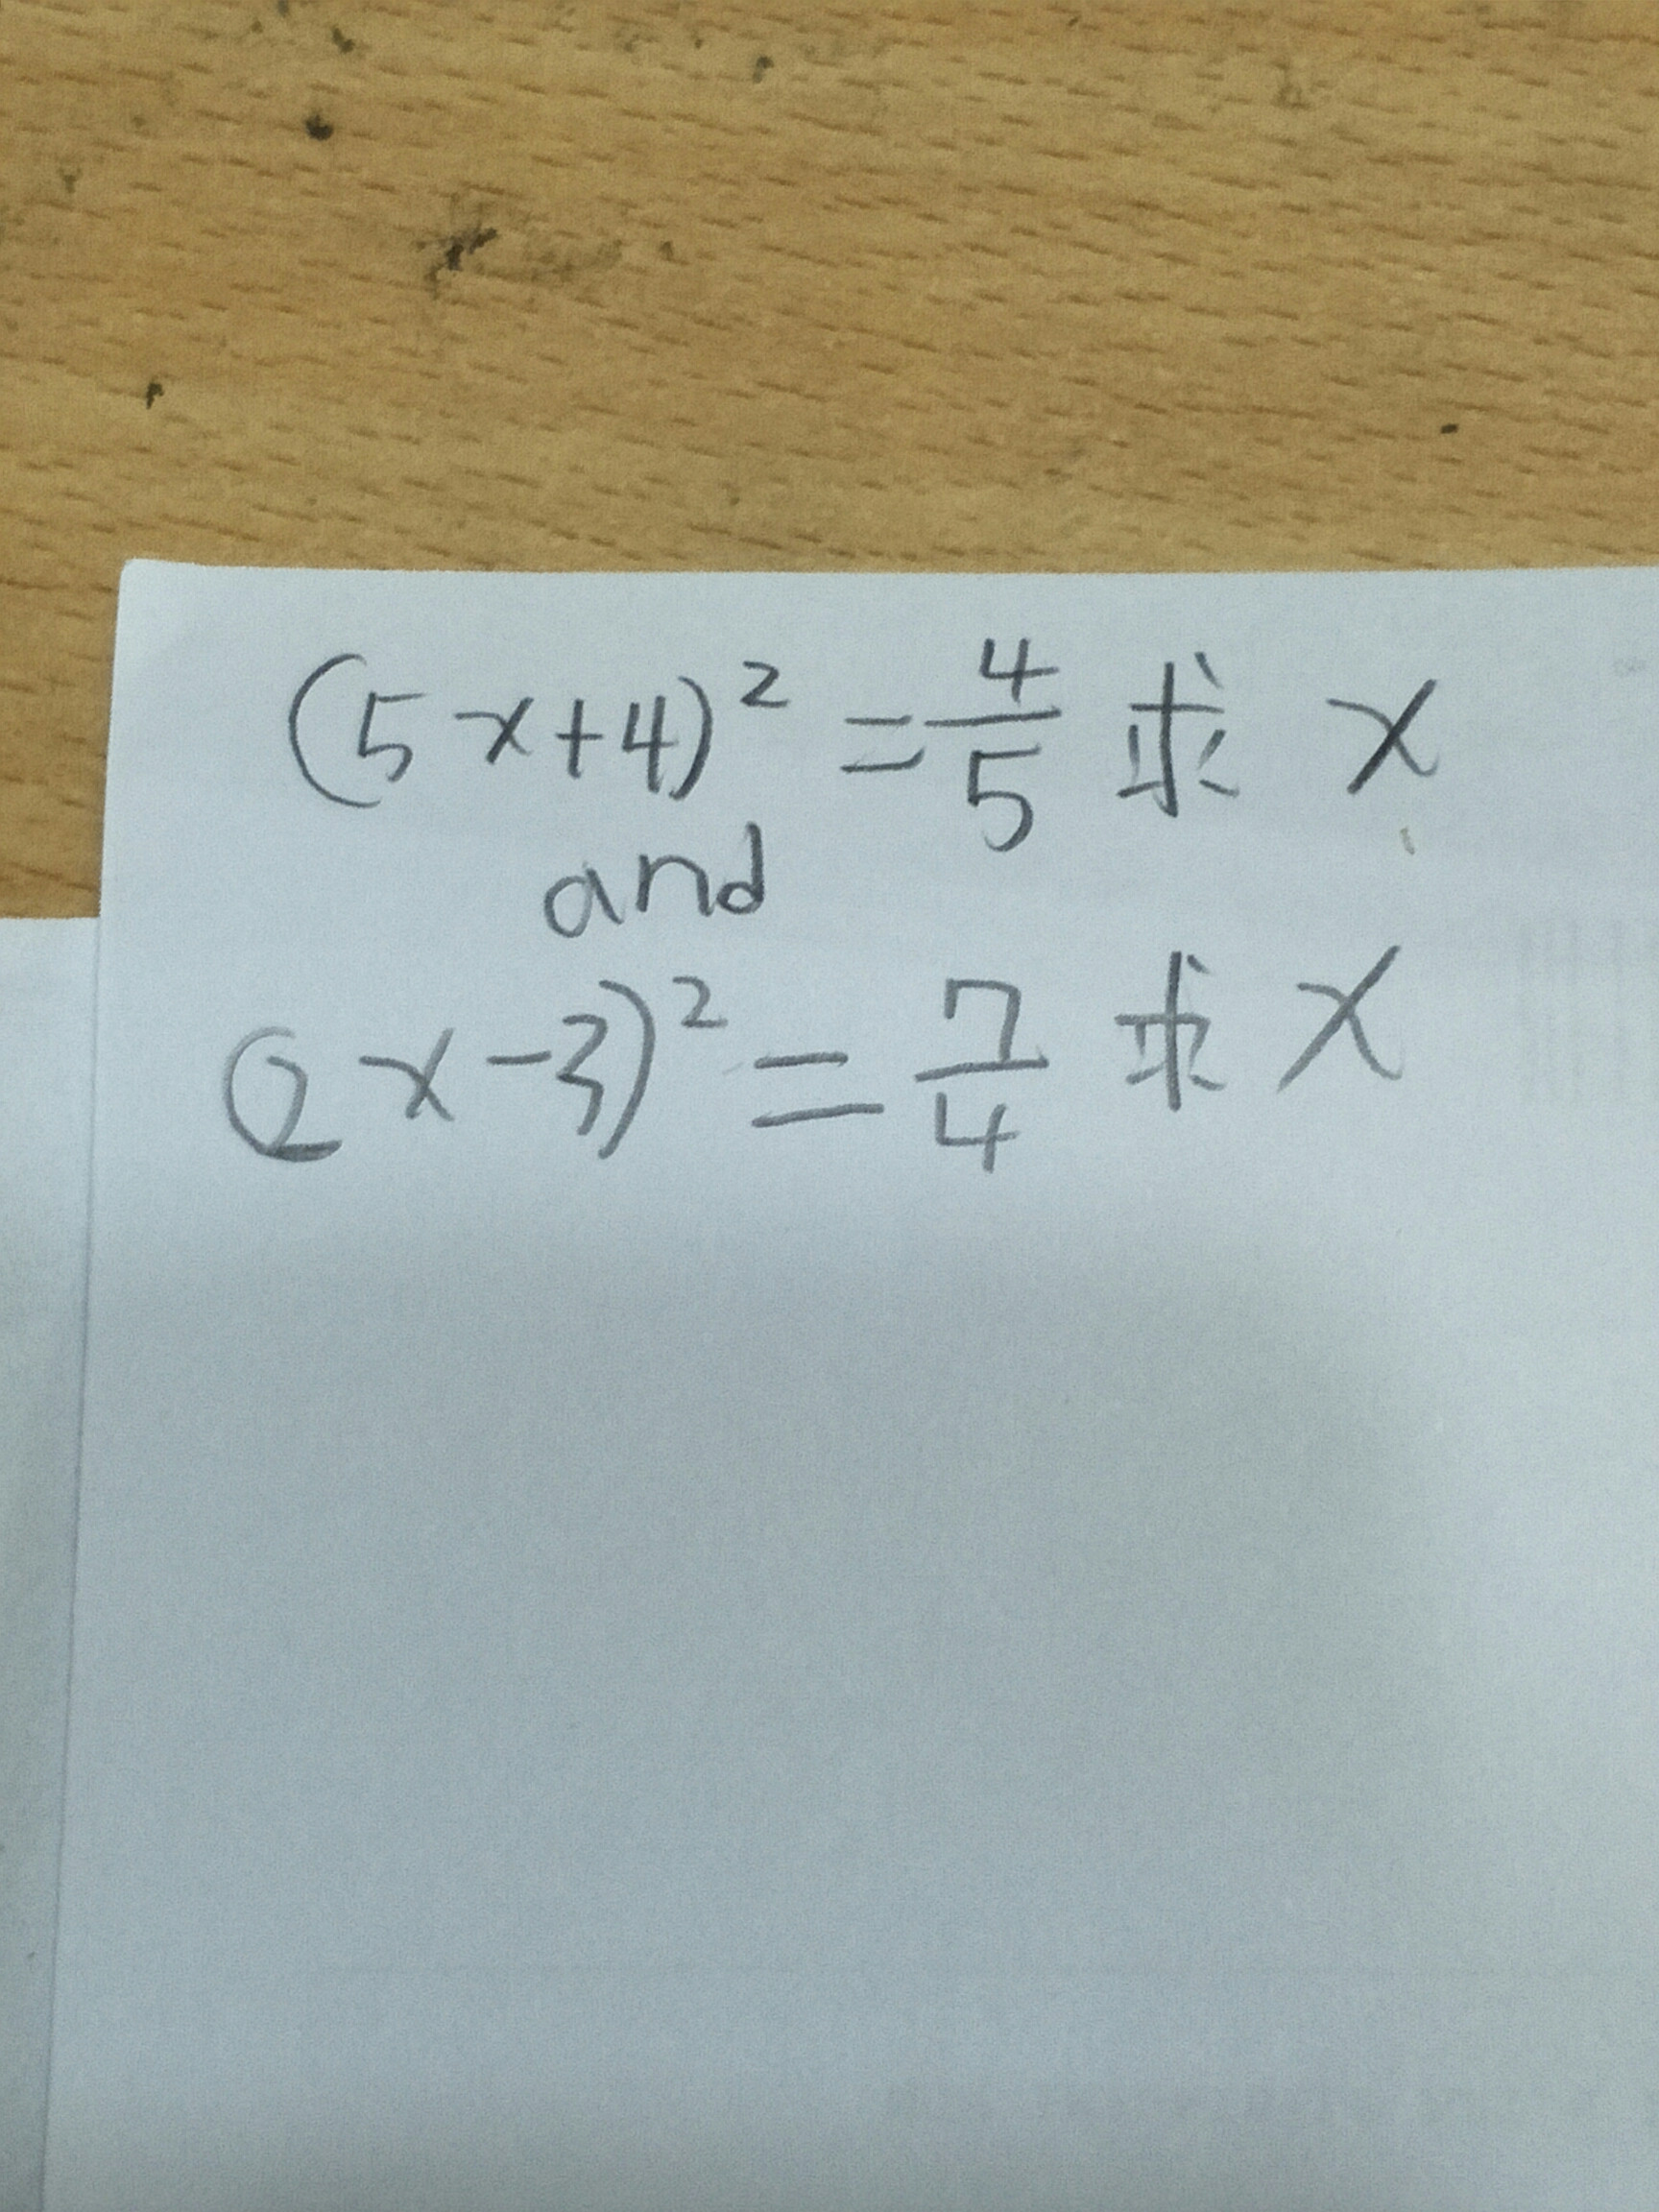 (5x+4)² = 4/5 求 x
and
(2x-3)² = 7/4 求 x